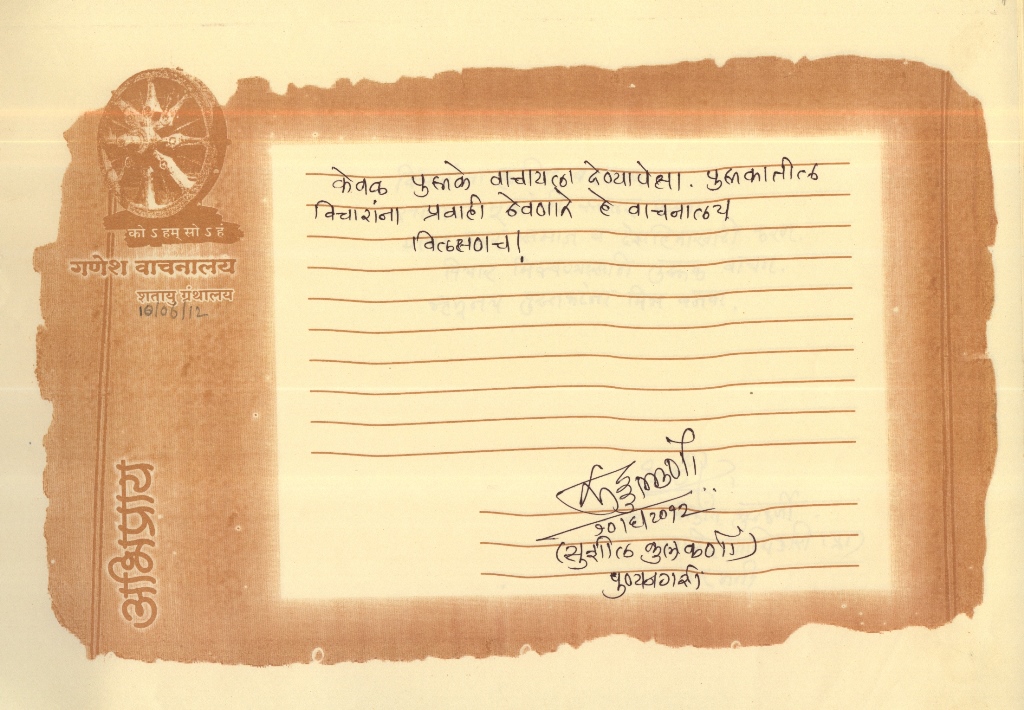 को ऽ हम् सो ऽ हं
गणेश वाचनालय
शतायु ग्रंथालय
10/06/12
अभिप्राय
केवळ पुस्तके वाचायला देण्यापेक्षा. पुस्तकातील
विचारांना प्रवाही ठेवणारे हे वाचनालय
विलक्षणच!
१०/६/२०१२
(सुशील कुलकर्णी)
पुण्यनगरी